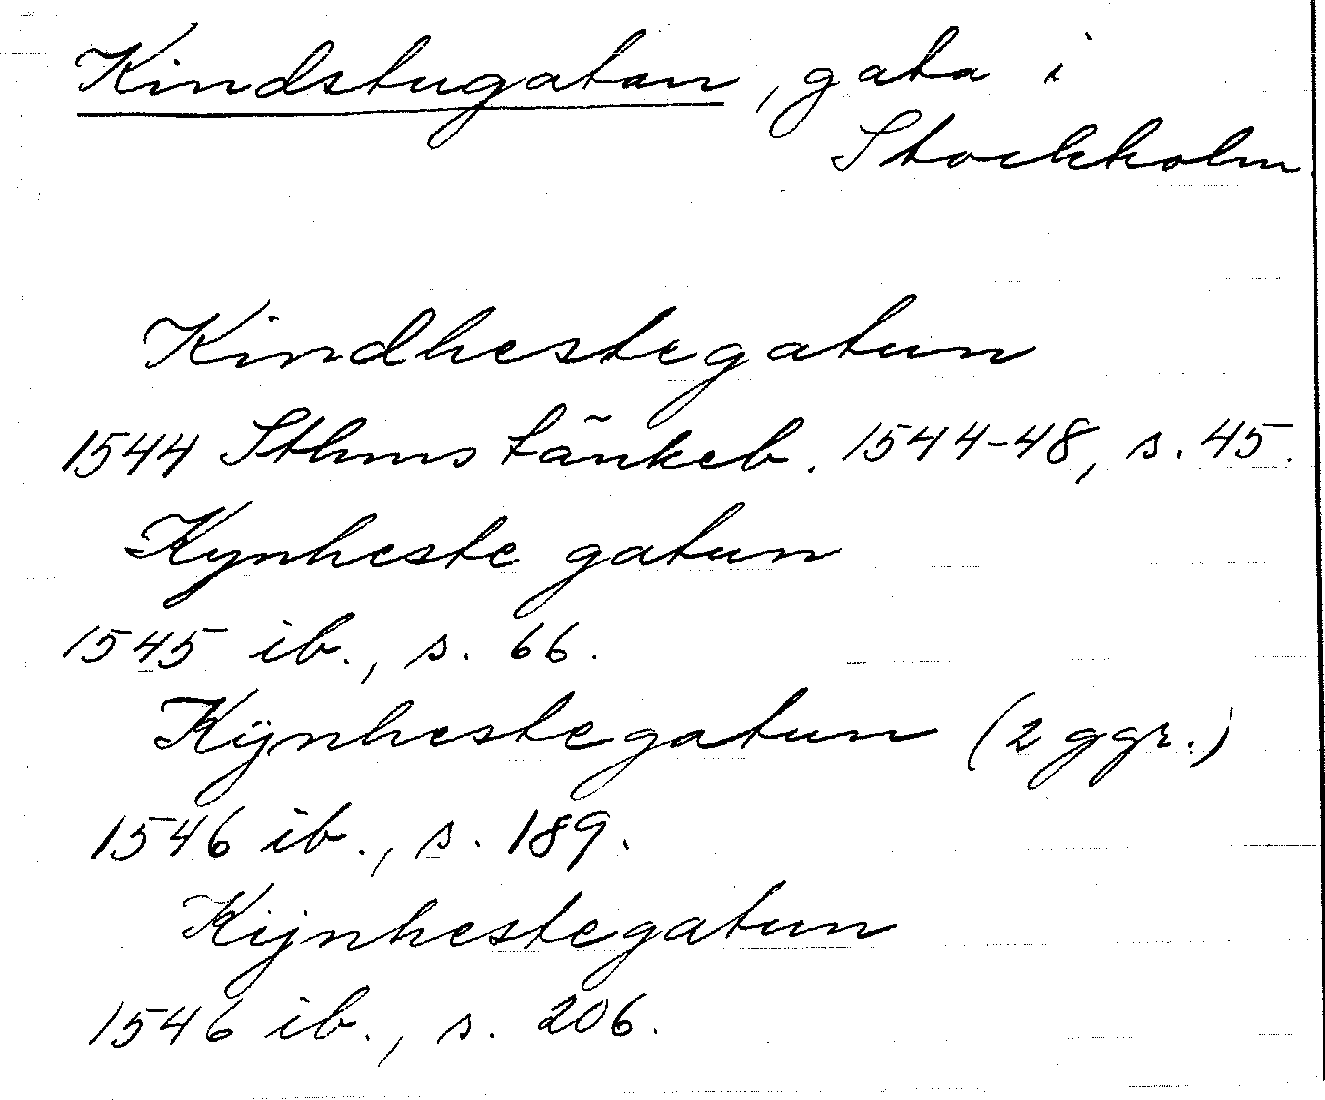 Kindstugatan, gata i
Stockholm.
Kindhestegatun
1544 Sthms tänkeb. 1544-48, s. 45.
Kynheste gatun
1545 ib., s. 66.
Kÿnhestegatun (2 ggr.)
1546 ib., s. 189.
Kijnhestegatun
1546 ib., s. 206.